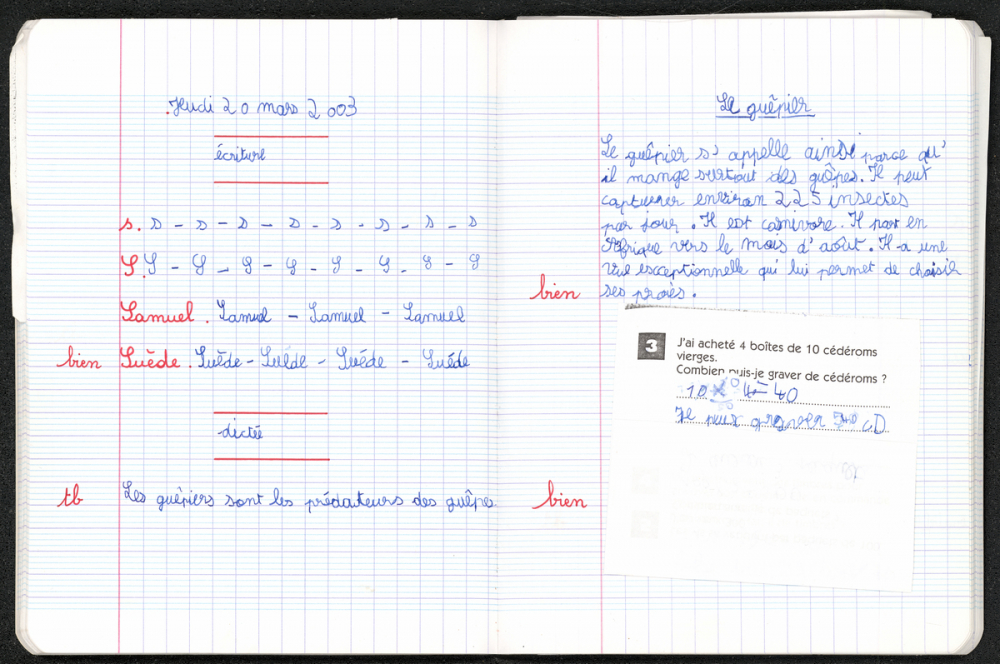 Jeudi 20 mars 2003
écriture
s. s - s - s - s - s - s - s - s
S. S - S - S - S - S - S - S - S
Samuel. Samuel - Samuel - Samuel
bien Suède. Suède - Suède - Suède - Suède
dictée
tb Les guêpiers sont les prédateurs des guêpes.
Le guêpier
Le guêpier s'appelle ainsi parce qu'
il mange surtout des guêpes. Il peut
capturer environ 225 insectes
par jour. Il est carnivore. Il part en
Afrique vers le mois d'août. Il a une
vue exceptionnelle qui lui permet de choisir
bien ses proies.
3 J'ai acheté 4 boîtes de 10 cédéroms
vierges.
Combien puis-je graver de cédéroms ?
10 x 4 = 40
Je peux graver 40 CD
bien